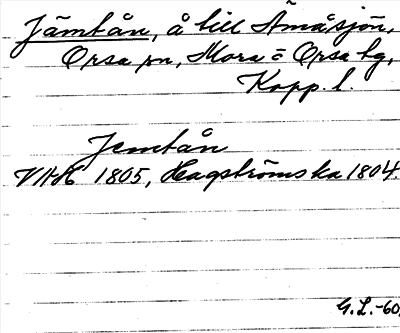 Jämtån, å till Ämåsjön,
Orsa sn, Mora = Orsa tg,
Kopp. l.
Jemtån
1805, Hagströmska 1804.
G.L.-60.